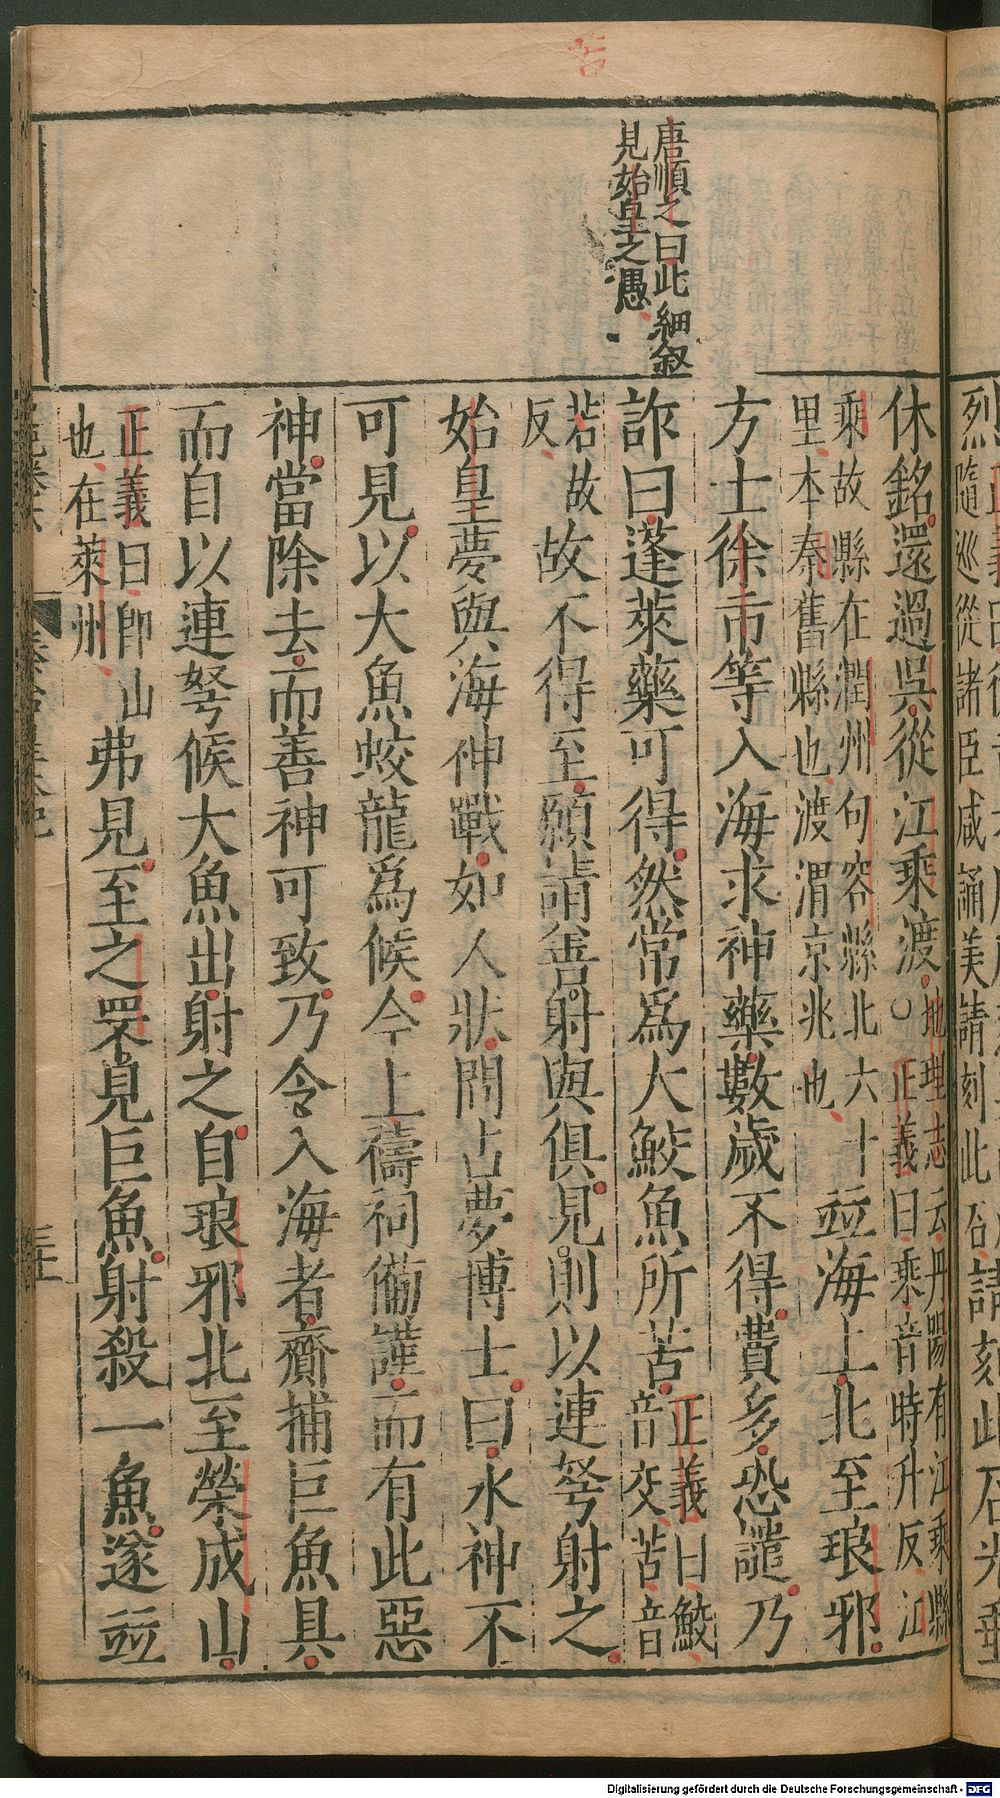 烈隨巡從諸臣咸誦美請刻此石請刻此石光垂
唐順之曰此細叙
見始皇之愚
休銘還過吳從江乘渡
地理志云丹陽有江乘縣
○正義曰乘音時升反江
乘故縣在潤州句容縣北六十
里本秦舊縣也渡渭京兆也
竝海上北至琅邪
方士徐市等入海求神藥數歲不得費多恐譴乃
詐曰蓬萊藥可得然常爲大鮫魚所苦
正義曰鮫
音交苦音
苦故
反
故不得至願請善射與俱見則以連弩射之
始皇夢與海神戰如人狀問占夢博士曰水神不
可見以大魚蛟龍爲候今上禱祠備謹而有此惡
神當除去而善神可致乃令入海者齎捕巨魚具
而自以連弩候大魚出射之自琅邪北至榮成山
正義曰即山
也在萊州
弗見至之罘見巨魚射殺一魚遂竝
Digitalisierung gefördert durch die Deutsche Forschungsgemeinschaft - DFG